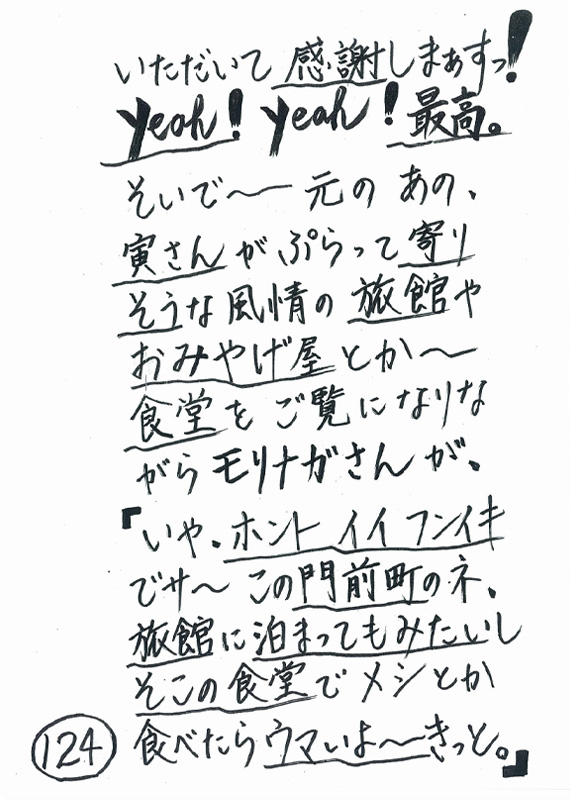 いただいて感謝しまぁすっ!
yeah! yeah! 最高。
そいで〜 元の あの、
寅さんが ぷらって寄り
そうな風情の 旅館や
おみやげ屋とか〜
食堂を ご覧になりな
がら モリナガさんが、
『いや。ホント イイ フンイキ
でサ〜 この門前町のネ、
旅館に泊まってもみたいし
そこの食堂で メシとか
食べたら ウマいよ〜きっと。』
124